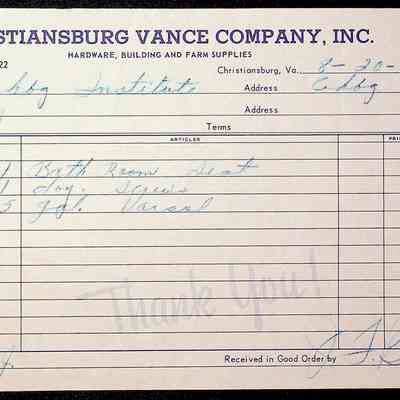 STIANSBURG VANCE COMPANY, INC.
HARDWARE, BUILDING AND FARM SUPPLIES
22
Christiansburg, Va. 8-20-
hbg Institute Address Cbbg
Address
Terms
ARTICLES PRI
1 Bath Room Seat
1 doz. Screws
5 gal. Varsol
Thank You!
Received in Good Order by